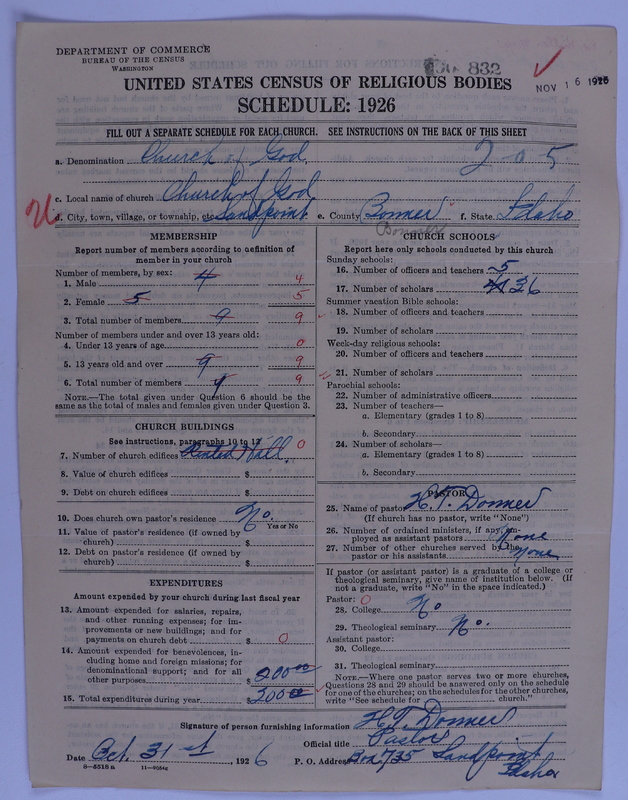 DEPARTMENT OF COMMERCE
BUREAU OF THE CENSUS
WASHINGTON
832
NOV 16 1926
UNITED STATES CENSUS OF RELIGIOUS BODIES
SCHEDULE: 1926
FILL OUT A SEPARATE SCHEDULE FOR EACH CHURCH. SEE INSTRUCTIONS ON THE BACK OF THIS SHEET
a. Denomination Church of God. 205
c. Local name of church Church of God
d. City, town, village, or township, etc. Sandpoint e. County Bonner f. State Idaho
Bonner
MEMBERSHIP
Report number of members according to definition of
member in your church
Number of members, by sex:
1. Male 4 4
2. Female 5 5
3. Total number of members 9 9
Number of members under and over 13 years old:
4. Under 13 years of age 0
5. 13 years old and over 9 9
6. Total number of members 9 9
NOTE.—The total given under Question 6 should be the
same as the total of males and females given under Question 3.
CHURCH BUILDINGS
See instructions, paragraphs 10 to 12 0
7. Number of church edifices Rented Hall.
8. Value of church edifices $
9. Debt on church edifices $
10. Does church own pastor's residence No.
Yes or No
11. Value of pastor's residence (if owned by
church) $
12. Debt on pastor's residence (if owned by
church) $
EXPENDITURES
Amount expended by your church during last fiscal year
13. Amount expended for salaries, repairs,
and other running expenses; for im-
provements or new buildings; and for
payments on church debt $ 0
14. Amount expended for benevolences, in-
cluding home and foreign missions; for
denominational support; and for all
other purposes $ 200 00
15. Total expenditures during year $ 200 00
CHURCH SCHOOLS
Report here only schools conducted by this church
Sunday schools:
16. Number of officers and teachers 5
17. Number of scholars 36
Summer vacation Bible schools:
18. Number of officers and teachers
19. Number of scholars
Week-day religious schools:
20. Number of officers and teachers
21. Number of scholars
Parochial schools:
22. Number of administrative officers
23. Number of teachers—
a. Elementary (grades 1 to 8)
b. Secondary
24. Number of scholars—
a. Elementary (grades 1 to 8)
b. Secondary
PASTOR
25. Name of pastor H. T. Donner
(If church has no pastor, write "None")
26. Number of ordained ministers, if any, em-
ployed as assistant pastors None
27. Number of other churches served by the
pastor or his assistants None
If pastor (or assistant pastor) is a graduate of a college or
theological seminary, give name of institution below. (If
not a graduate, write "No" in the space indicated.)
Pastor: 0
28. College No
29. Theological seminary No.
Assistant pastor:
30. College
31. Theological seminary
NOTE.—Where one pastor serves two or more churches,
Questions 28 and 29 should be answered only on the schedule
for one of the churches; on the schedules for the other churches,
write "See schedule for church."
Signature of person furnishing information H. T. Donner
Official title Pastor
Date Oct. 31st, 1926 P. O. Address Box 735 Sandpoint
Idaho
8—5518a 11—9084